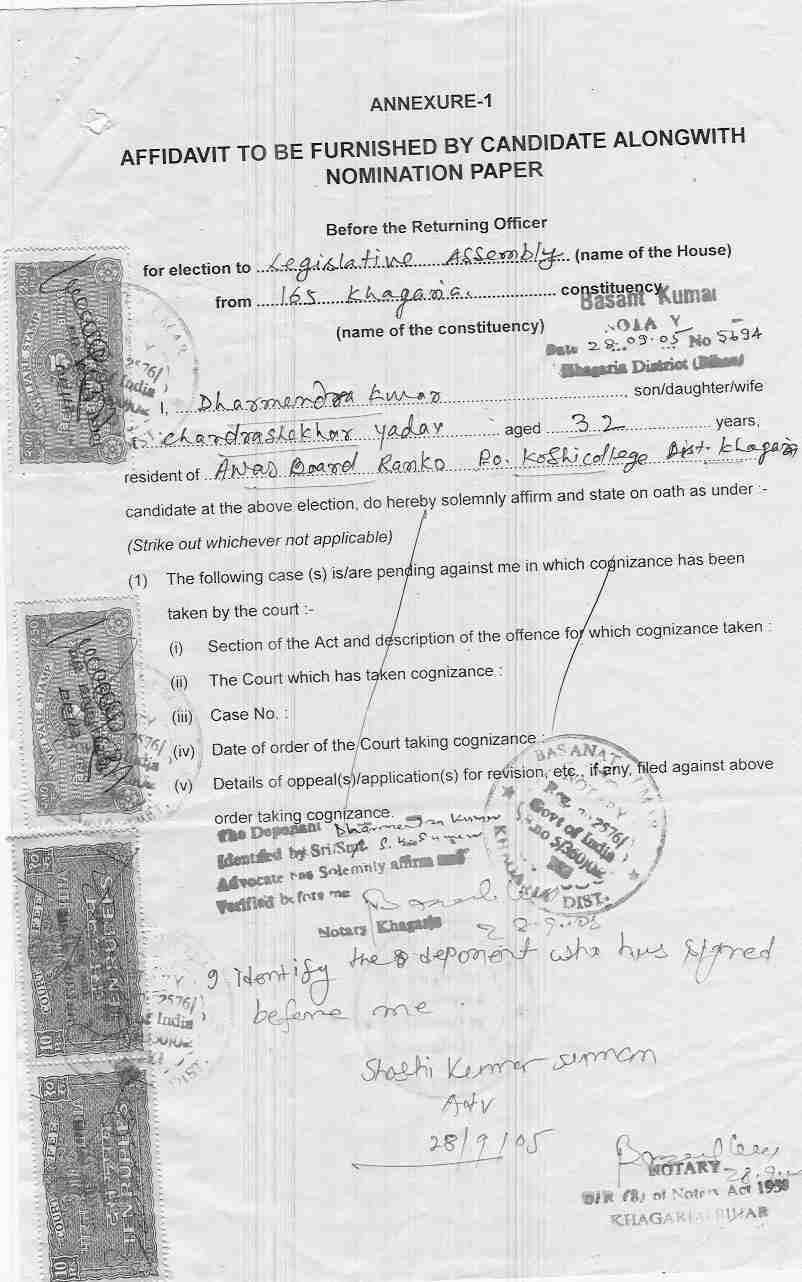 ANNEXURE-1
AFFIDAVIT TO BE FURNISHED BY CANDIDATE ALONGWITH
NOMINATION PAPER
Before the Returning Officer
for election to Legislative Assembly (name of the House)
from 165 Khagaria constituency
(name of the constituency)
Basant Kumar
Date 28.09.05 No 5694
Khagaria District (Bihar)
I, Dharmendra Kumar, son/daughter/wife
Chandrashekhar Yadav aged 32 years,
resident of Awas Board Ranko Po. Koshi college Dist. Khagaria
candidate at the above election, do hereby solemnly affirm and state on oath as under :-
(Strike out whichever not applicable)
(1) The following case (s) is/are pending against me in which cognizance has been
taken by the court :-
(i) Section of the Act and description of the offence for which cognizance taken :
(ii) The Court which has taken cognizance :
(iii) Case No. :
(iv) Date of order of the Court taking cognizance :
(v) Details of oppeal(s)/application(s) for revision, etc., if any, filed against above
order taking cognizance.
The Deponant Dharmendra Kumar
Identified by Sri/Smt
Advocate has Solemnly affirm
Verified before me
Notary Khagaria
BASANAT KUMAR
NOTARY
Reg. no 2576/
Govt of India
KHAGARIA DIST.
I Identify the deponent who has signed
before me
Shashi Kumar suman
Adv
28/9/05
NOTARY
of Notary Act
KHAGARIA BIHAR
COURT FEE
TEN RUPEES
COURT FEE
TEN RUPEES